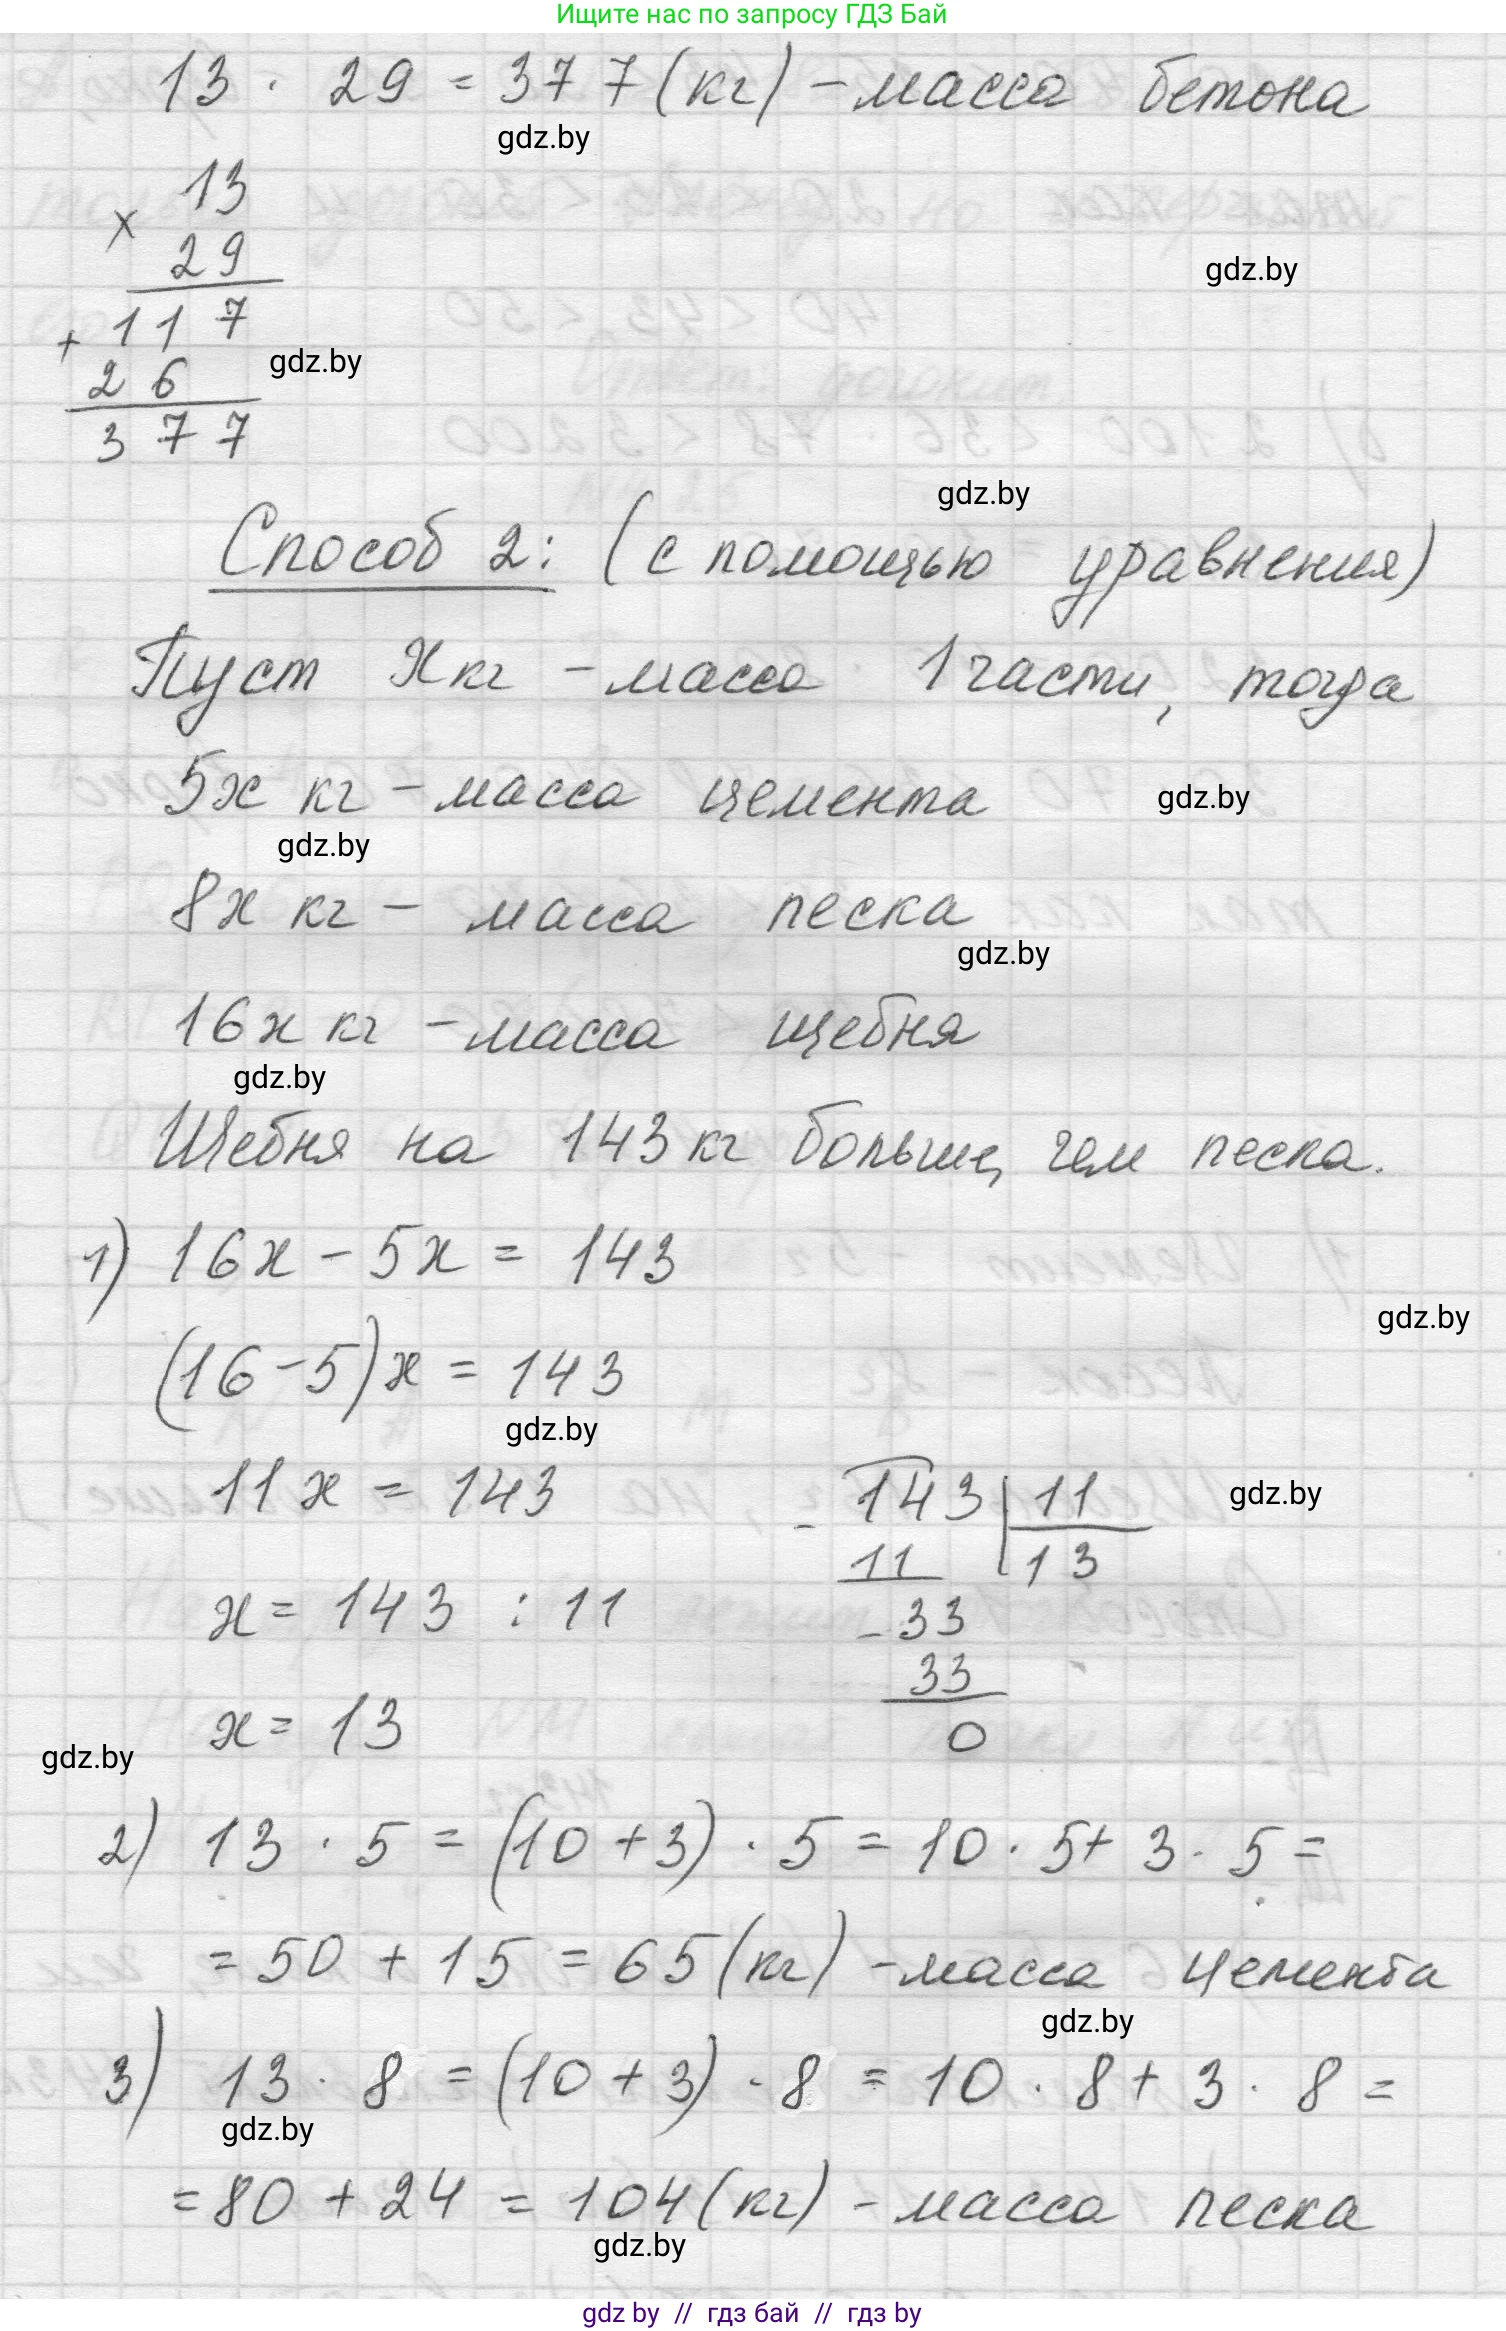 Ищите нас по запросу ГДЗ Бай
13 · 29 = 377 (кг) - масса бетона
gdz.by
13
×
29
gdz.by
+ 117
26
gdz.by
377
gdz.by
Способ 2: (с помощью уравнения)
Пуст х кг - масса 1 части, тогда
5х кг - масса цемента
gdz.by
gdz.by
8х кг - масса песка
gdz.by
16х кг - масса щебня
gdz.by
Щебня на 143 кг больше, чем песка.
1) 16х - 5х = 143
gdz.by
(16 - 5)х = 143
gdz.by
11х = 143
- 143 | 11
gdz.by
11 | 13
х = 143 : 11
- 33
33
х = 13
0
gdz.by
2) 13 · 5 = (10 + 3) · 5 = 10 · 5 + 3 · 5 =
= 50 + 15 = 65 (кг) - масса цемента
gdz.by
3) 13 · 8 = (10 + 3) · 8 = 10 · 8 + 3 · 8 =
gdz.by
= 80 + 24 = 104 (кг) - масса песка
gdz.by
gdz by // гдз бай // гдз by